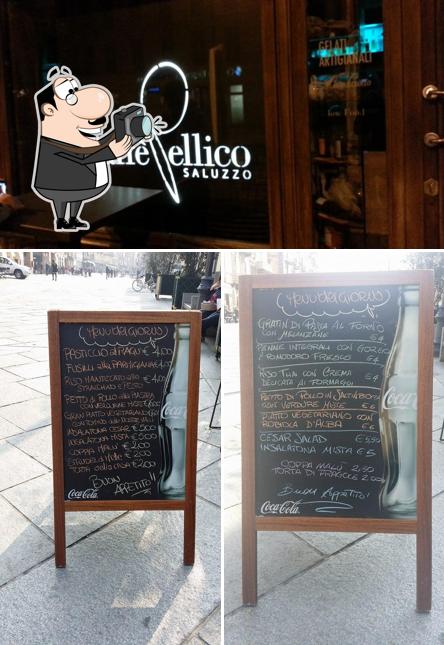 GELATI
ARTIGIANALI
ellico
SALUZZO
Menu del giorno
PASTICCIO al RAGÙ € 4,00
FUSILLI alla PARMIGIANA € 4,00
RISO MANTECATO allo
PETTO di POLLO alla
GRAN PIATTO VEGETARIANO
INSALATONA CESAR € 5,00
INSALATONA MISTA € 5,00
COPPA MALÙ € 2,00
STRUDEL di MELE € 2,00
TORTA della CASA € 2,00
BUON
APPETITO!
Coca-Cola
Menu del giorno
GRATIN DI PASTA AL FORNO
CON MELANZANE € 4
PENNE INTEGRALI CON
E POMODORO FRESCO € 4
RISO THAI CON CREMA
DELICATA AI FORMAGGI € 4
PETTO DI POLLO IN
CON VERDURE MISTE € 6
PIATTO VEGETARIANO CON
ROBIOLA D'ALBA € 6
CESAR SALAD € 5,50
INSALATONA MISTA € 5
COPPA MALÙ 2,50
TORTA DI PESCHE 2,00
Buon Appetito!
Coca-Cola